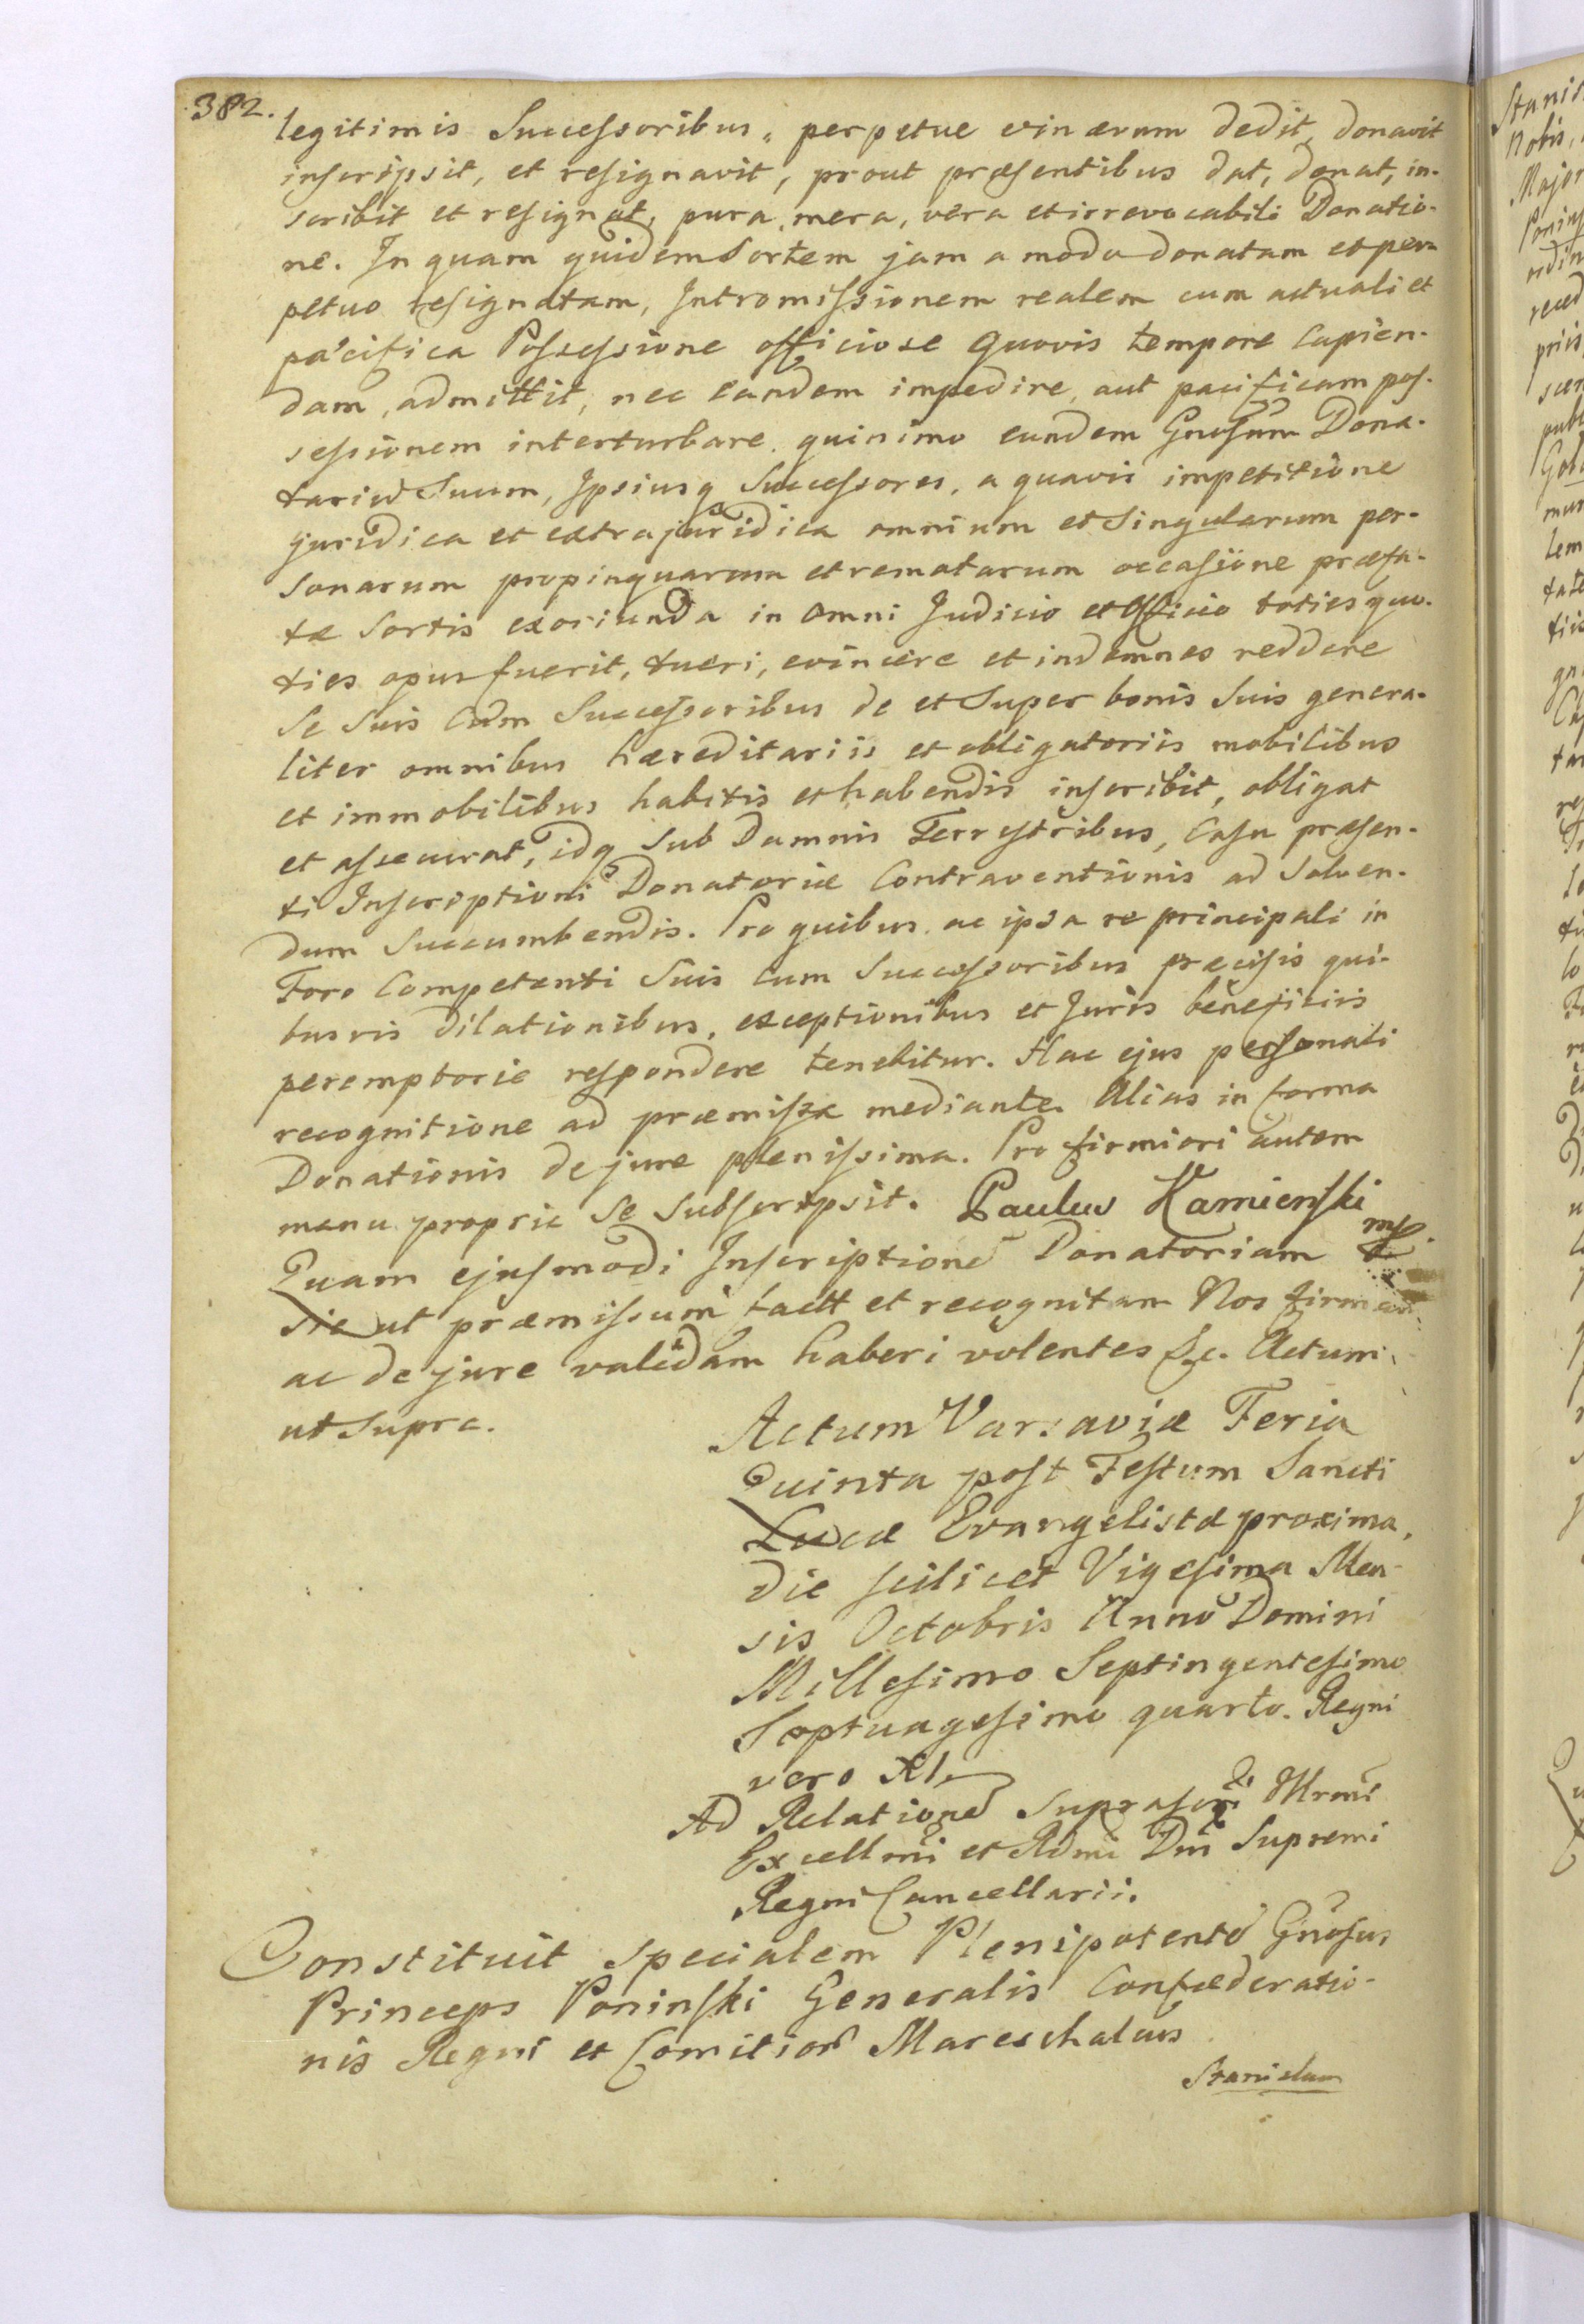 382.
legitimis Successoribus, perpetue et in ævum dedit, donavit
inscripsit, et resignavit, prout præsentibus dat, donat, in-
scribit et resignat, pura, mera, vera et irrevocabili Donatio-
ne. In quam quidem Sortem jam a modo donatam et per-
petuo resignatam, Intromissionem realem cum actuali et
pacifica Possessione officiose quovis tempore Capien-
dam, admittit, nec eandem impedire, aut pacificam pos-
sessionem interturbare. quinimo eundem Gnosum Dona-
tariũ Suum, Ipsiusq Successores, a quavis impetitione
juridica et extrajuridica omnium et Singularum per-
sonarum propinquarum et remotarum occasione præfa-
tæ Sortis exoriunda in Omni Judicio et Officio toties quo-
ties opus fuerit, tueri, evincere et indemnes reddere
Se Suis Cum Successoribus de et Super bonis Suis genera-
liter omnibus hæreditariis et obligatoriis mobilibus
et immobilibus habitis et habendis inscribit, obligat
et assecurat, idq Sub Damnis Terrestribus, Casu præsen-
ti Inscriptioni Donatoriæ Contraventionis ad Solven-
dum Succumbendis. Pro quibus ac ipsa re principali in
Foro Competenti Suis cum Successoribus præcisis qui-
busvis dilationibus, exceptionibus et Juris beneficiis
peremptorie respondere tenebitur. Hac ejus personali
recognitione ad præmissa mediante. Alias in forma
Donationis de jure plenissima. Pro firmiori autem
manu propria Se Subscripsit. Paulus Kamienski
mp.
Quam ejusmodi Inscriptionẽ Donatoriam
Sic ut præmissum factã et recognitam Nos firmam
ac de jure validam haberi volentes &c. Actum
ut Supra.
Actum Varsaviæ Feria
Quinta post Festum Sancti
Lucæ Evangelistæ proxima,
die scilicet Vigesima Men-
sis Octobris Anno Domini
Millesimo Septingentesimo
Septuagesimo quarto. Regni
vero XI
Ad Relationẽ Suprascri Illrmi
Excellmi et Rdmi Dni Supremi
Regni Cancellarii.
Constituit Specialem Plenipotentẽ Gnosus
Princeps Poninski Generalis Confæderatio-
nis Regni et Comitior Mareschalcus
Stanislaum